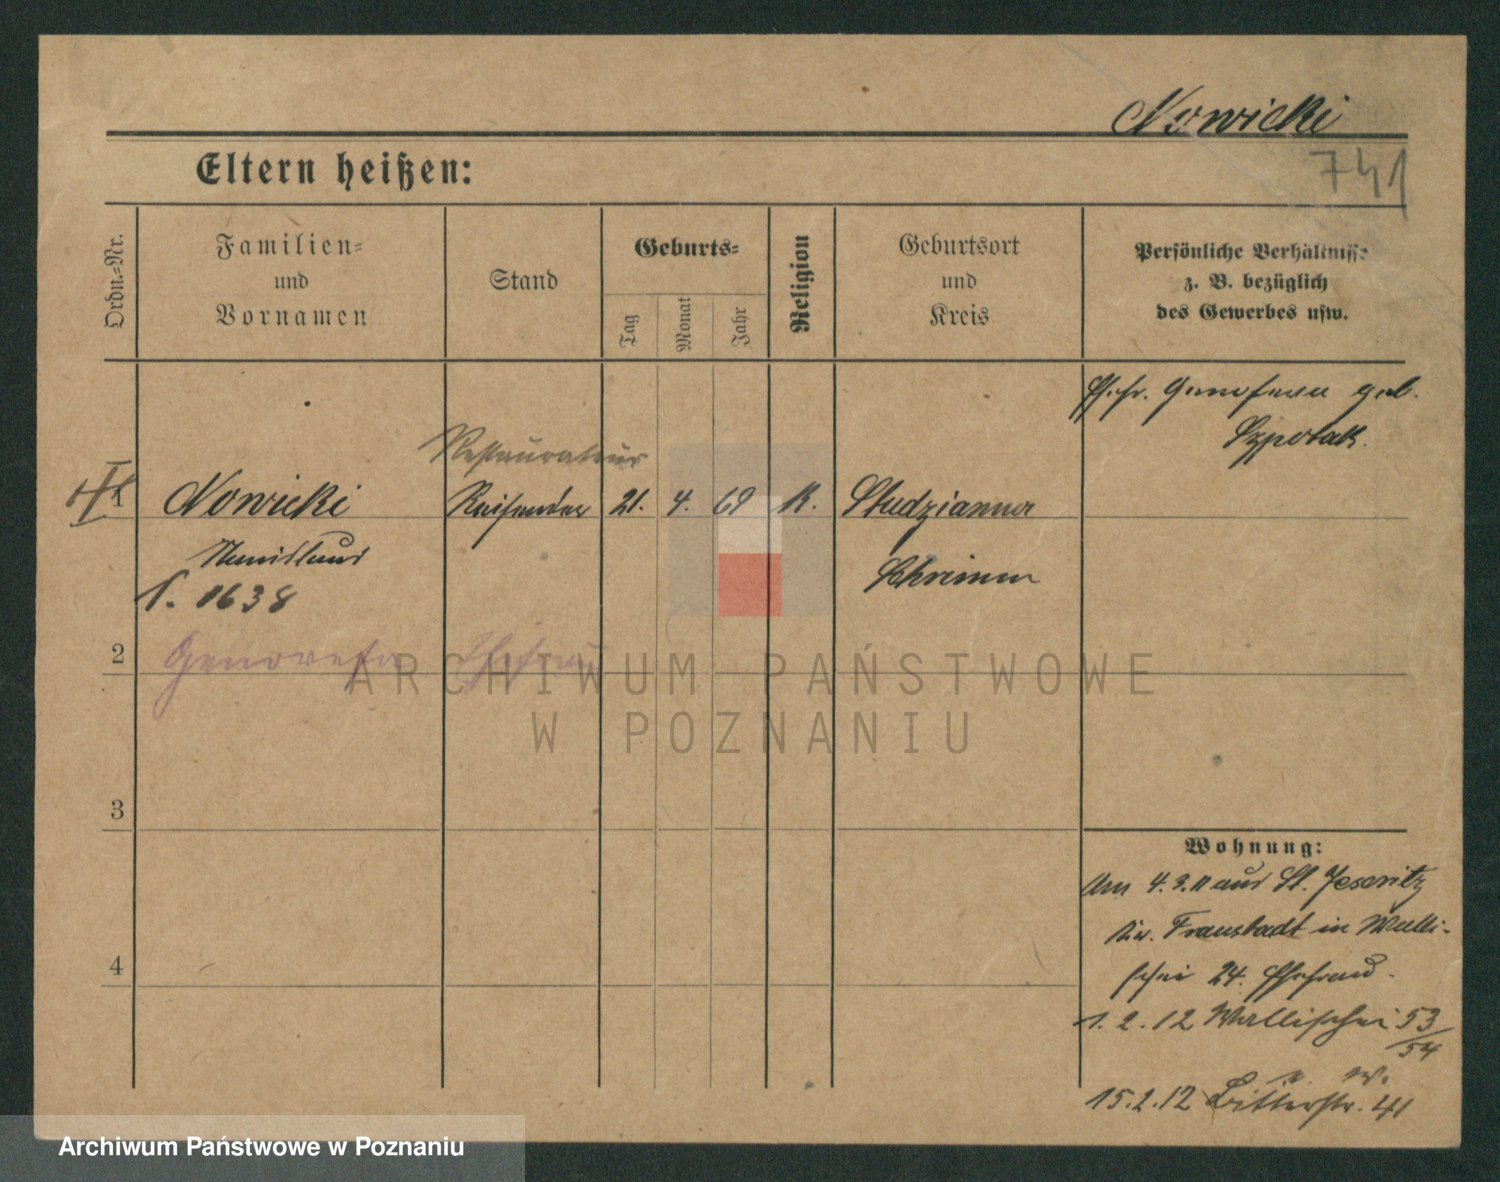 Nowicki
741
Eltern heißen:
Ordn.-Nr.
Familien-
und
Vornamen
Stand
Geburts-
Tag
Monat
Jahr
Religion
Geburtsort
und
Kreis
Persönliche Verhältnisse
z. B. bezüglich
des Gewerbes usw.
Ehefr. Genofeva geb.
Szpotak.
Restaurateur
1 Nowicki Reisender 21. 4. 69 K. Studzianna
Schrimm
1638
2 Genowefa Ehefrau
3
4
Wohnung:
Am 4.3.11 aus St. Jeseritz
Kr. Fraustadt in Walli-
schei 24. Ehefrau.
1.2.12 Wallischei 53/54
15.2.12 Bitterstr. 41
ARCHIWUM PAŃSTWOWE
W POZNANIU
Archiwum Państwowe w Poznaniu